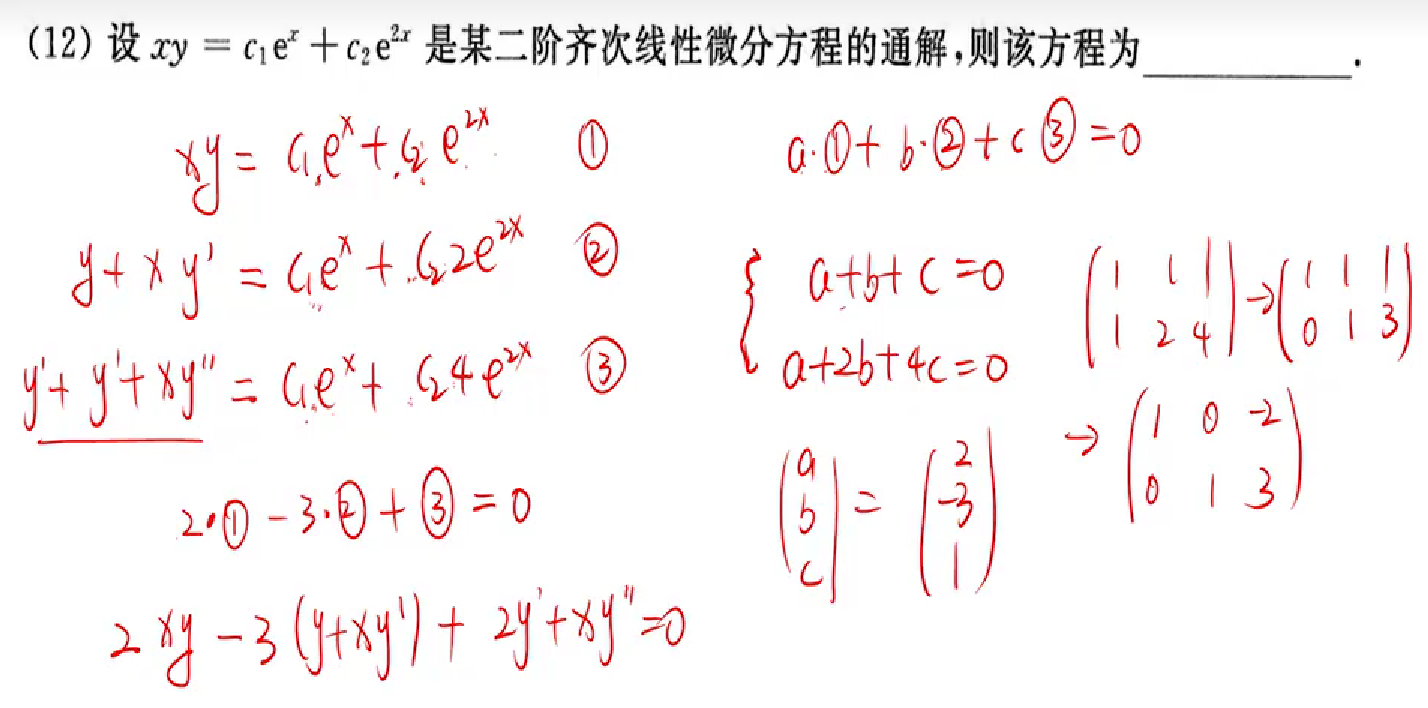 (12) 设 xy = c₁eˣ + c₂e²ˣ 是某二阶齐次线性微分方程的通解,则该方程为__________.
xy = C₁eˣ + C₂e²ˣ ①
y + xy' = C₁eˣ + C₂2e²ˣ ②
y' + y' + xy'' = C₁eˣ + C₂4e²ˣ ③
2·① - 3·② + ③ = 0
2xy - 3(y+xy') + 2y' + xy'' = 0
a·① + b·② + c③ = 0
{ a+b+c=0
a+2b+4c=0
(1 1 1
1 2 4) → (1 1 1
0 1 3)
→ (1 0 -2
0 1 3)
(a
b
c) = (2
-3
1)